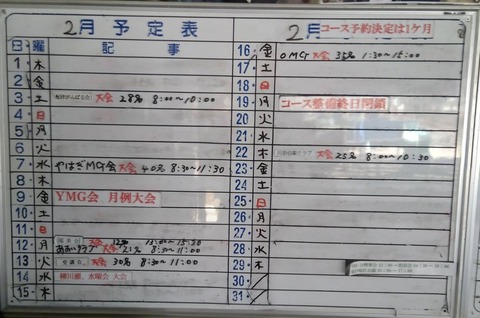 2月 予定表
日 曜 記事
1 木
2 金
3 土 大会 28名 8:00〜10:00
4 日
5 月
6 火
7 水 やはぎMG会 大会 40名 8:30〜11:30
8 木
9 金 YMG会 月例大会
10 土
11 日
12 月 大会 12名
あおいクラブ 大会 21名 8:30〜11:00
13 火 大会 30名 8:30〜11:00
14 水 水曜会 大会
15 木
2月 コース予約決定は1ケ月
16 金 OMG 大会 35名 1:30〜15:00
17 土
18 日
19 月 コース整備終日閉鎖
20 火
21 水
22 木 クラブ 大会 25名 8:30〜11:00
23 金
24 土
25 日
26 月
27 火
28 水
29 木
30
31